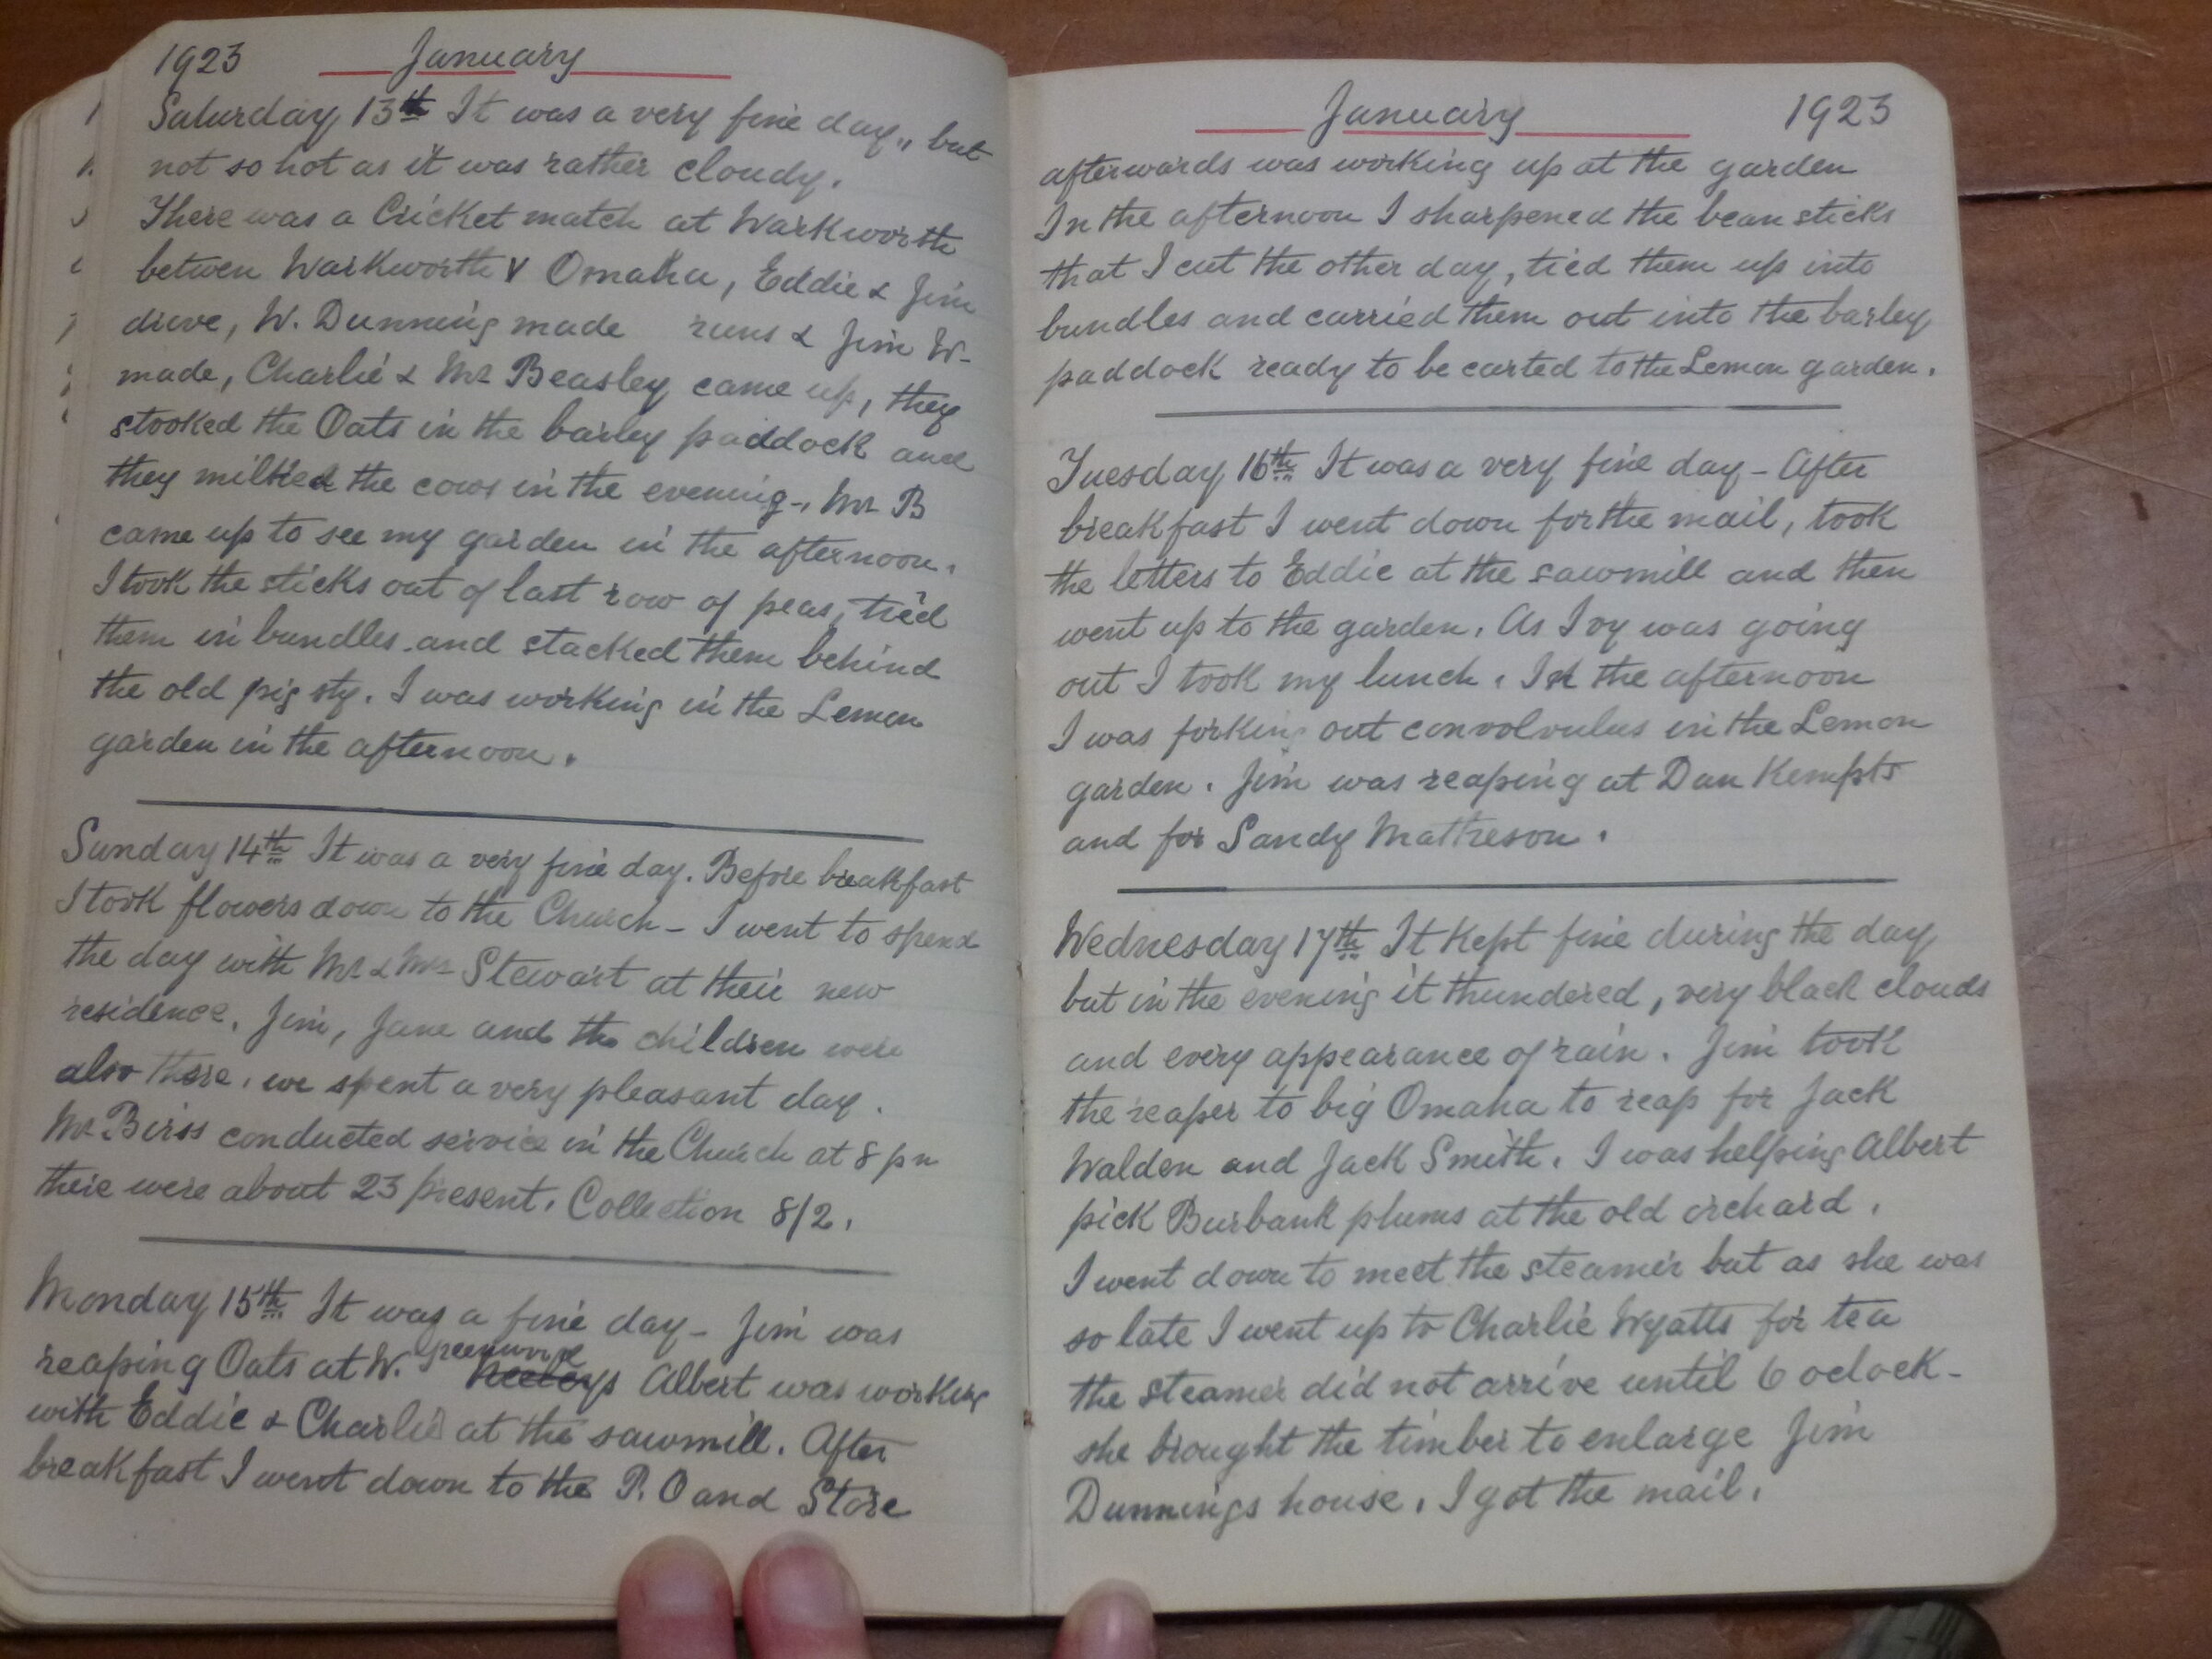 1923 January
Saturday 13th It was a very fine day,, but
not so hot as it was rather cloudy.
There was a Cricket match at Warkworth
betwen Warkworth V Omaha, Eddie & Jim
drove, W. Dunning made runs & Jim W-
made, Charlie & Mr Beasley came up, they
stooked the Oats in the barley paddock and
they milked the cows in the evening-, Mr B
came up to see my garden in the afternoon.
I took the sticks out of last row of peas, tied
them in bundles and stacked them behind
the old pig sty. I was working in the Lemon
garden in the afternoon.
Sunday 14th It was a very fine day. Before breakfast
I took flowers down to the Church - I went to spend
the day with Mr & Mrs Stewart at their new
residence. Jim, Jane and the children were
also there. we spent a very pleasant day.
Mr Birss conducted service in the Church at 8 pm
there were about 23 present. Collection 8/2.
Monday 15th It was a fine day - Jim was
reaping Oats at W. Greenwood Albert was working
with Eddie & Charlie at the sawmill. After
breakfast I went down to the P.O and Store
January 1923
afterwards was working up at the garden
In the afternoon I sharpened the bean sticks
that I cut the other day, tied them up into
bundles and carried them out into the barley
paddock ready to be carted to the Lemon garden.
Tuesday 16th It was a very fine day - After
breakfast I went down for the mail, took
the letters to Eddie at the sawmill and then
went up to the garden. As Ivy was going
out I took my lunch. In the afternoon
I was forking out convolvulus in the Lemon
garden. Jim was reaping at Dan Kempts
and for Sandy Matheson.
Wednesday 17th It Kept fine during the day
but in the evening it thundered, very black clouds
and every appearance of rain. Jim took
the reaper to big Omaha to reap for Jack
Walden and Jack Smith. I was helping Albert
pick Burbank plums at the old orchard.
I went down to meet the steamer but as she was
so late I went up to Charlie Wyatts for tea
the steamer did not arrive until 6 oclock-
she brought the timber to enlarge Jim
Dunnings house. I got the mail.